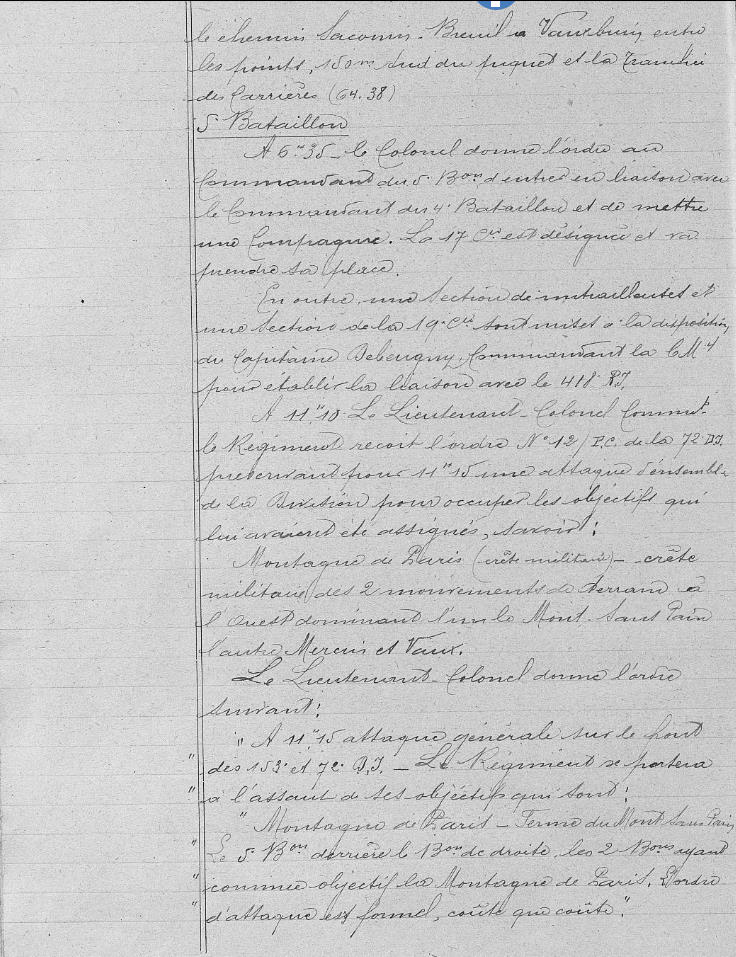 le chemin Saconin-Breuil à Vauxbuin entre
les points, 150m sud du piquet et la Tranchée
des Carrières (64.38)
5e Bataillon
A 6h35 - le Colonel donne l'ordre au
Commandant du 5e Bon d'entrer en liaison avec
le Commandant du 4e Bataillon et de mettre
une Compagnie. La 17e Cie est désignée et va
prendre sa place.
En outre, une Section de mitrailleuses et
une Section de la 19e Cie sont mises à la disposition
du Capitaine Debeugny, Commandant la CM4
pour établir la liaison avec le 418e R.I.
A 11h10 Le Lieutenant-Colonel Commdt
le Régiment reçoit l'ordre No 12/P.C. de la 72e D.I.
prescrivant pour 11h15 une attaque d'ensemble
de la Division pour occuper les objectifs qui
lui avaient été assignés, savoir :
Montagne de Paris (crête militaire) - crête
militaire des 2 mouvements de terrain à
l'Ouest dominant l'un le Mont Sans Pain
l'autre Mercin et Vaux.
Le Lieutenant-Colonel donne l'ordre
suivant :
" A 11h15 attaque générale sur le front
" des 153e et 72e D.I. - Le Régiment se portera
" à l'assaut de ses objectifs qui sont :
" Montagne de Paris - Ferme du Mont Sans Pain
" Le 5e Bon derrière le Bon de droite, les 2 Bons ayant
" comme objectif la Montagne de Paris. L'ordre
" d'attaque est formel, coûte que coûte."